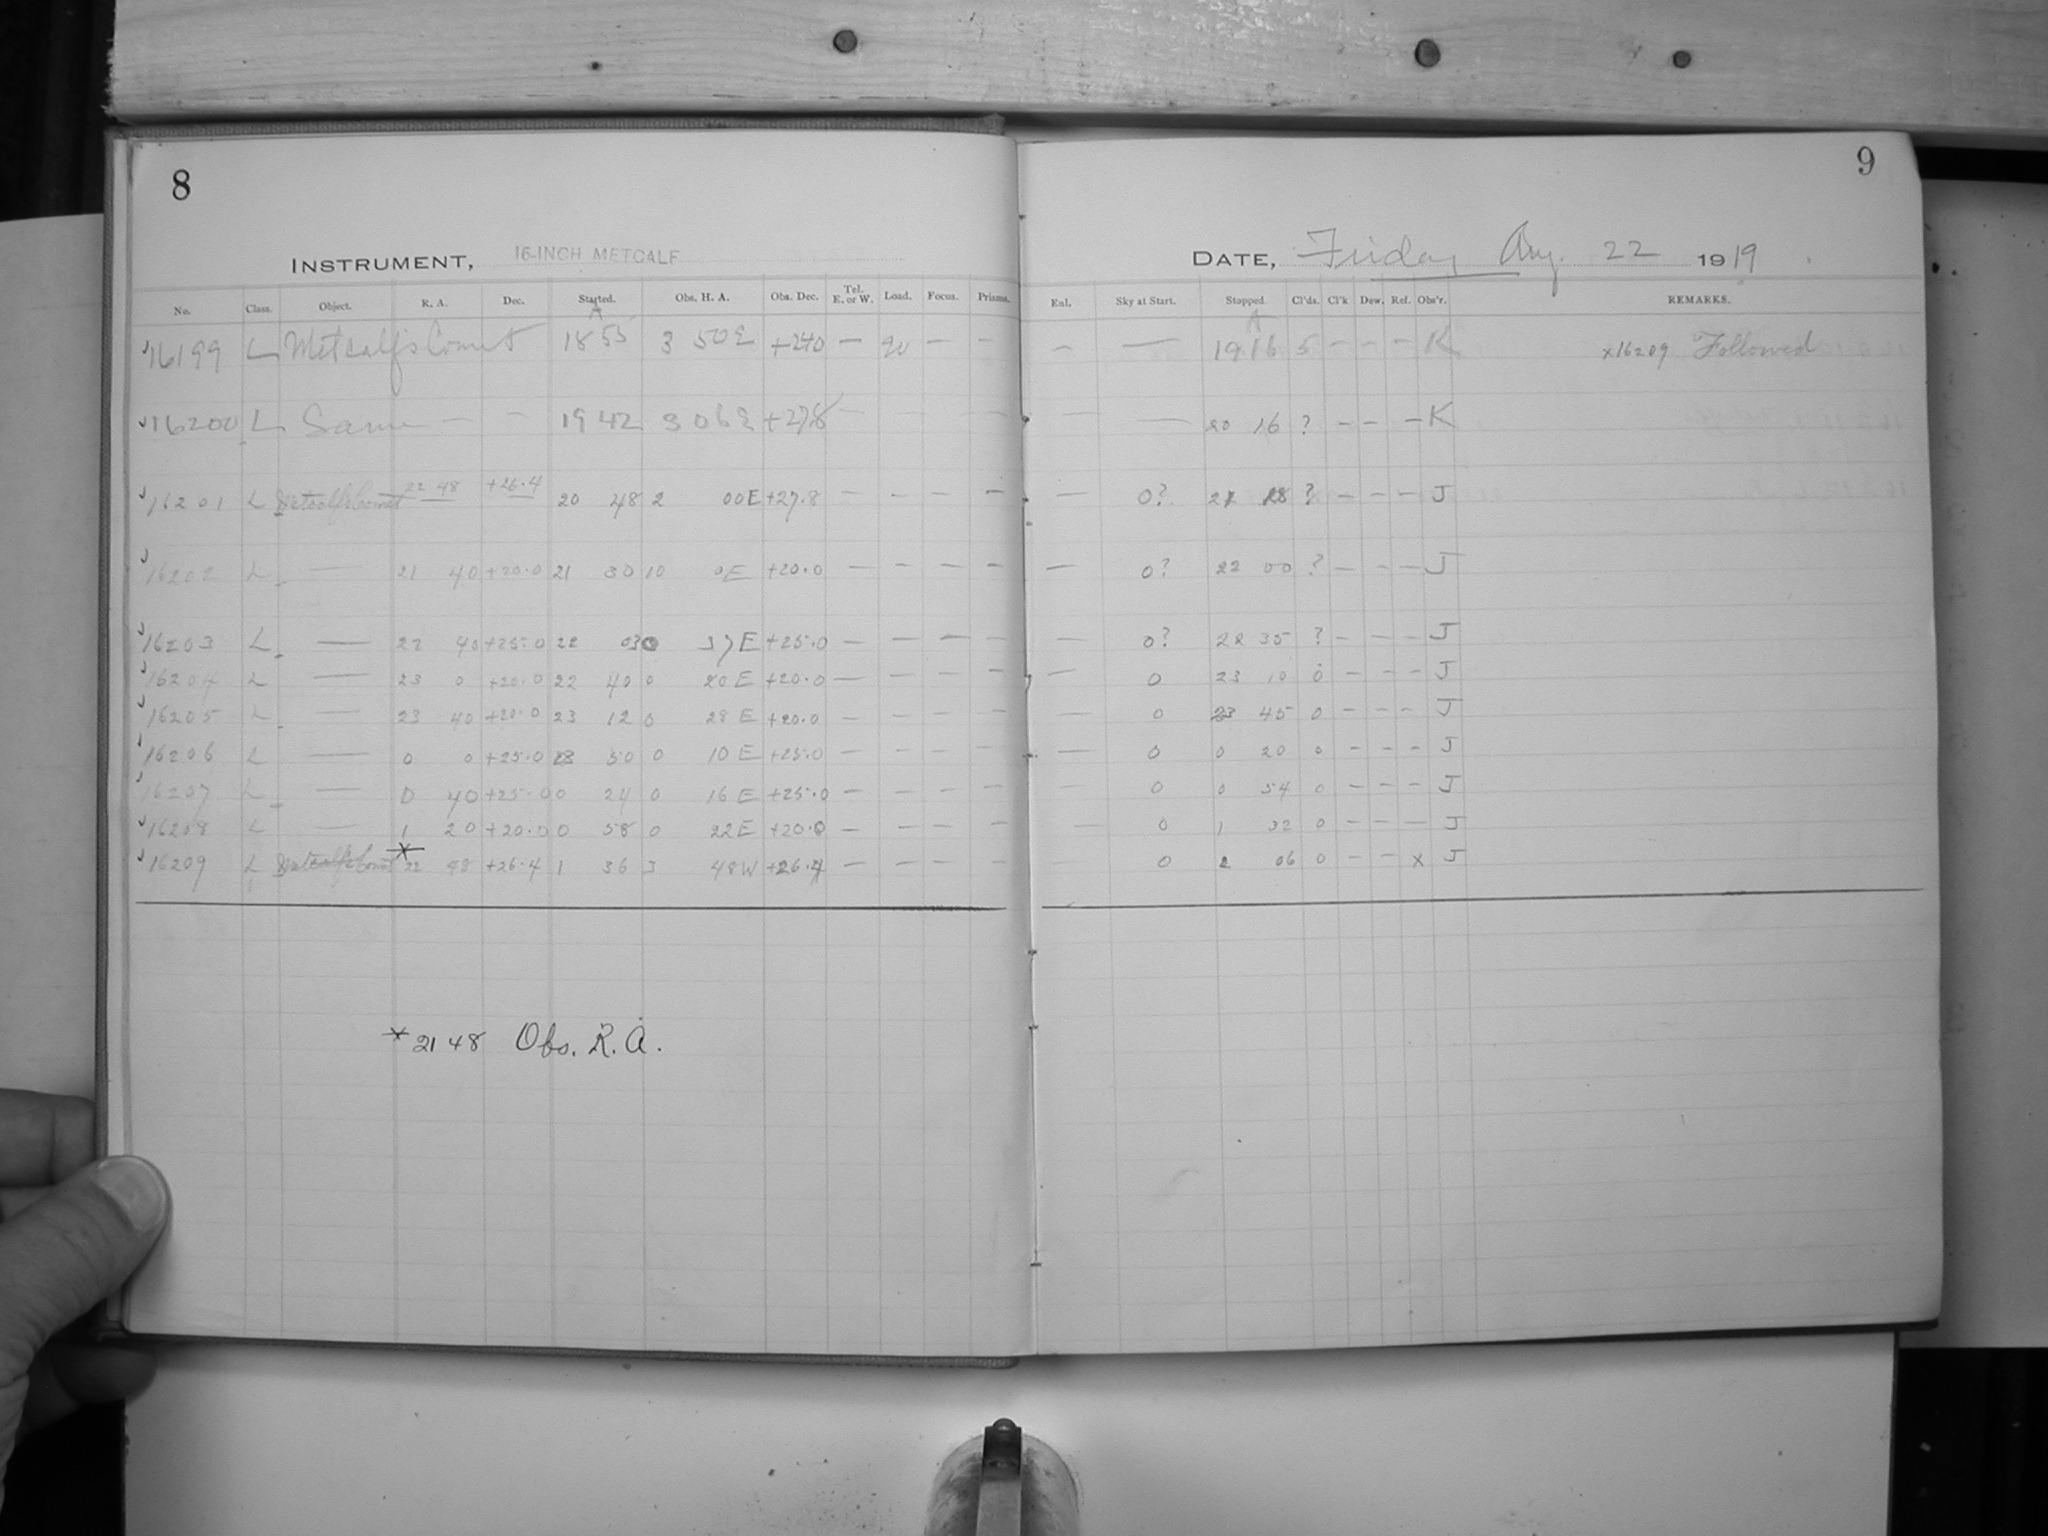 8
INSTRUMENT, 16-INCH METCALF
No. Class. Object. R. A. Dec. Started. Obs. H. A. Obs. Dec. Tel. E. or W. Load. Focus. Prisms.
A
16199 L Metcalf's Comet 18 55 3 50 E +240 — 90 — —
16200 L Same — — 19 42 3 06 E +27.8 —
16201 L Metcalf's Comet 22 48 +26.4 20 48 2 00 E +27.8 — — — —
16202 L — 21 40 +20.0 21 30 10 0 E +20.0 — — — —
16203 L — 22 40 +25.0 22 03 0 37 E +25.0 — — — —
16204 L — 23 0 +20.0 22 40 0 20 E +20.0 — — — —
16205 L — 23 40 +20.0 23 12 0 28 E +20.0 — — — —
16206 L — 0 0 +25.0 23 50 0 10 E +25.0 — — — —
16207 L — 0 40 +25.0 0 24 0 16 E +25.0 — — — —
16208 L — 1 20 +20.0 0 58 0 22 E +20.0 — — — —
16209 L Metcalf's Comet * 22 48 +26.4 1 36 3 48 W +26.4 — — — —
* 21 48 Obs. R. A.
9
DATE, Friday Aug. 22 1919
Enl. Sky at Start. Stopped. Cl'ds. Cl'k Dew. Ref. Obs'r. REMARKS.
A
— — 19 16 5 — — — K x16209 Followed
— — 20 16 ? — — — K
— 0? 21 18 ? — — — J
— 0? 22 00 ? — — — J
— 0? 22 35 ? — — — J
— 0 23 10 0 — — — J
— 0 23 45 0 — — — J
— 0 0 20 0 — — — J
— 0 0 54 0 — — — J
— 0 1 32 0 — — — J
0 2 06 0 — — x J